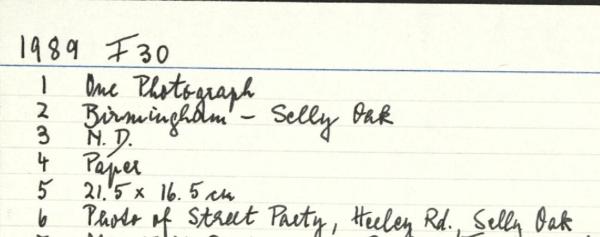 1989 F30
1 One Photograph
2 Birmingham – Selly Oak
3 N.D.
4 Paper
5 21.5 x 16.5 cm
6 Photo of Street Party, Heeley Rd., Selly Oak